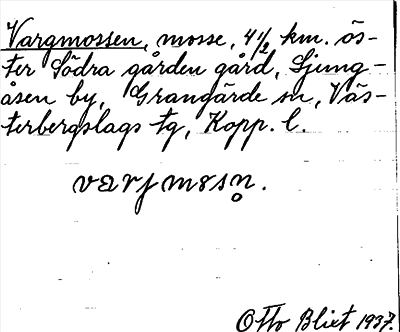 Vargmossen, mosse, 4 1/2 km. ös-
ter Södra gården gård, Ljung-
åsen by, Grangärde sn, Väs-
terbergslags tg, Kopp. l.
varjmosn̥.
Otto Blixt 1937.